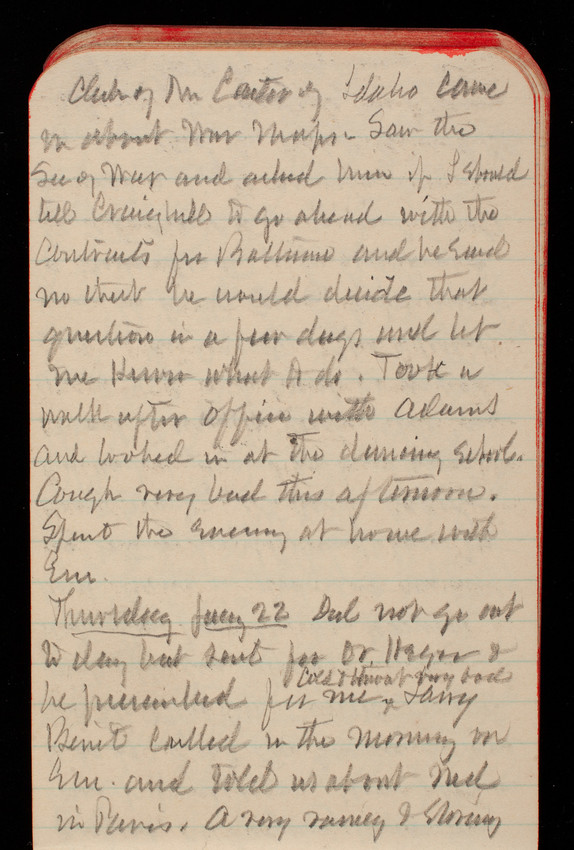 Club of Mr Carter of Idaho came
in about War Maps. Saw the
Sec of War and asked him if I should
tell Craighill to go ahead with the
Contracts for Baltimore and he said
no that he would decide that
question in a few days and let
me know what to do. Took a
walk after office with Adams
and looked in at the dancing school.
Cough very bad this afternoon.
Spent the evening at home with
Em.
Thursday Jany 22 Did not go out
to day but sent for Dr. &
Cold & throat very bad
he prescribed for me &
Benet called in the morning on
Em. and told us about Ned
in Paris. A very rainy &